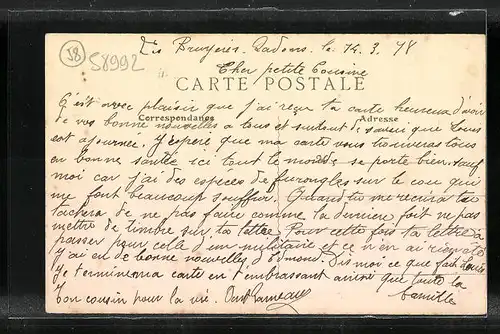 58
58992
Les Bruyères. Radons. le 14.3.18
Cher petite Cousine
CARTE POSTALE
C'est avec plaisir que j'ai reçu ta carte heureux d'avoir
Correspondance
Adresse
de vos bonne nouvelles a tous et surtout de savoir que Louis
est ajournée. J'espère que ma carte vous trouveras tous
en bonne santée ici tout le monde se porte bien sauf
moi car j'ai des espèces de furongles sur le cou qui
me font beaucoup souffrir. Quand tu me recrira tu
tachera de ne pas faire comme la derniere foit ne pas
mettre de timbre sur ta lettre. Pour cette fois ta lettre à
passer pour celle d'un militaire et ce n'en au rien été
J'ai eu de bonne nouvelles d'edmond. Dis moi ce que fait Louis
Je terminer ma carte en t'embrassant ainsi que toute la
famille
Ton cousin pour la vie.